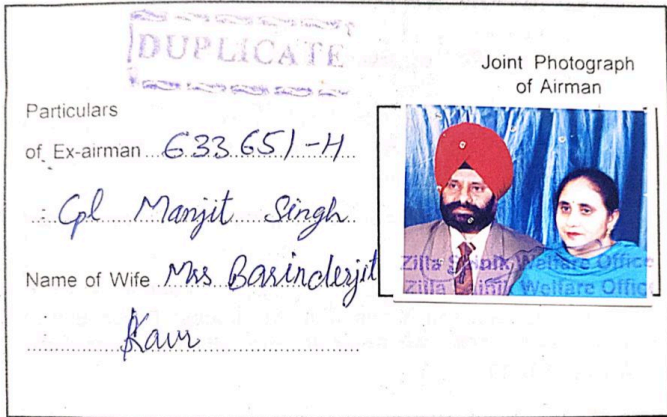 DUPLICATE
Joint Photograph
of Airman
Particulars
of Ex-airman 633651-H
Cpl Manjit Singh
Name of Wife Mrs Barinderjit
Kaur
Zilla Sainik Welfare Office
Zilla Sainik Welfare Office